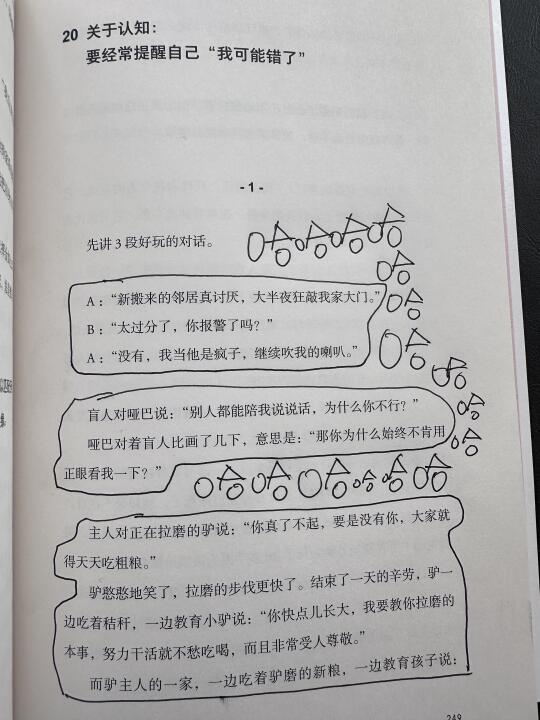 20 关于认知：
要经常提醒自己“我可能错了”
- 1 -
先讲 3 段好玩的对话。
A：“新搬来的邻居真讨厌，大半夜狂敲我家大门。”
B：“太过分了，你报警了吗？”
A：“没有，我当他是疯子，继续吹我的喇叭。”
盲人对哑巴说：“别人都能陪我说说话，为什么你不行？”
哑巴对着盲人比画了几下，意思是：“那你为什么始终不肯用
正眼看我一下？”
主人对正在拉磨的驴说：“你真了不起，要是没有你，大家就
得天天吃粗粮。”
驴憨憨地笑了，拉磨的步伐更快了。结束了一天的辛劳，驴一
边吃着秸秆，一边教育小驴说：“你快点儿长大，我要教你拉磨的
本事，努力干活就不愁吃喝，而且非常受人尊敬。”
而驴主人的一家，一边吃着驴磨的新粮，一边教育孩子说：
249